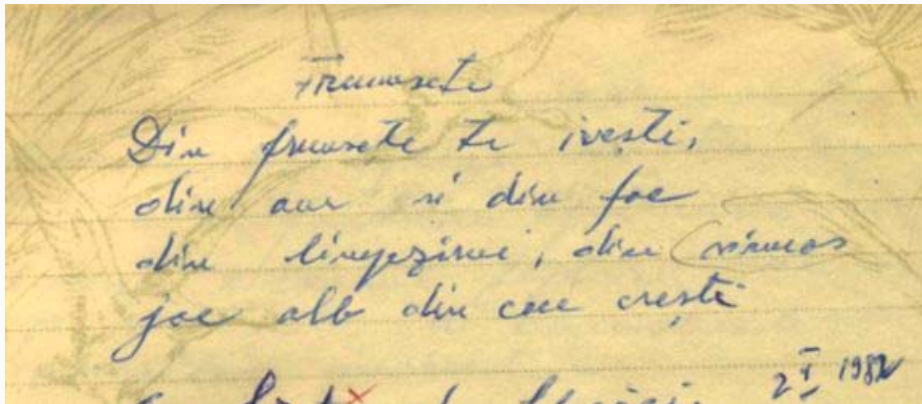 Frumusețe
Din frumusețe te ivești,
din aur si din foc
din limpezimi, din
joc alb din care crești
2 I 1982